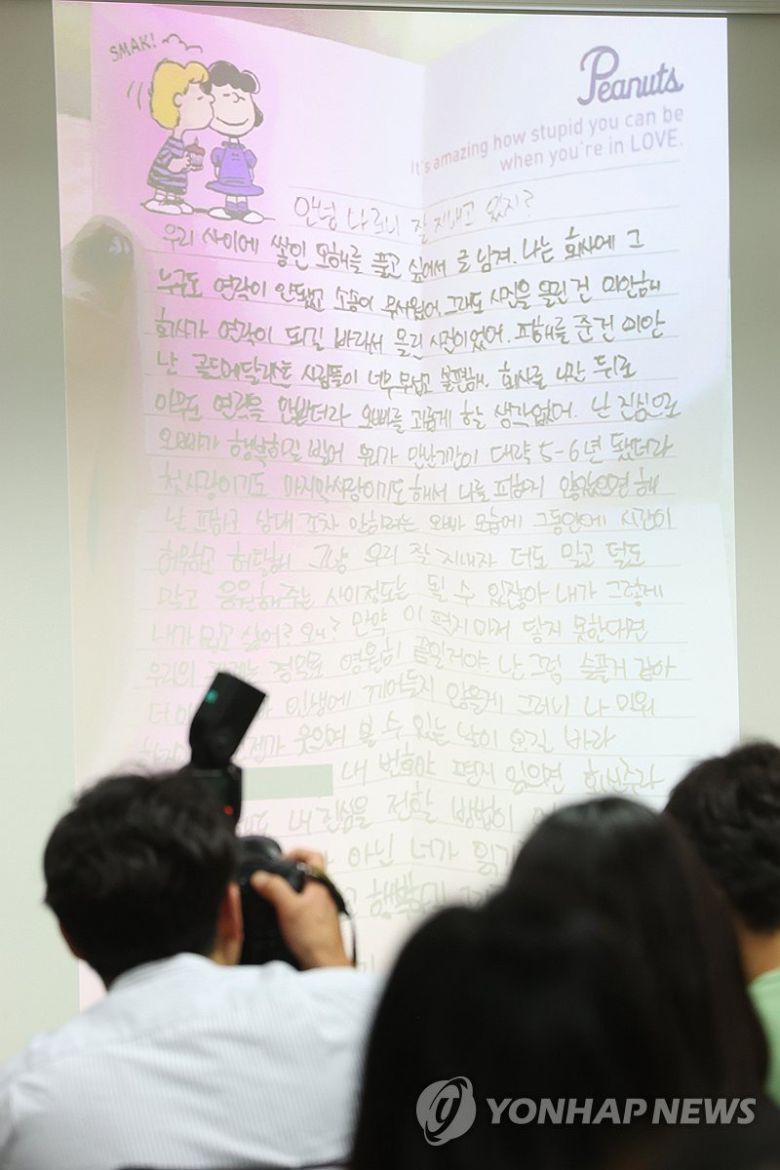 SMAK!
Peanuts
It's amazing how stupid you can be
when you're in LOVE.
안녕 나 잘 지내고 있지?
우리 사이에 쌓인 오해를 풀고 싶어서 글 남겨. 나는 회사에 그
누구도 연락이 안됐고 소송이 무서웠어. 그래도 사진을 올린 건 미안해
회사가 연락이 되길 바라서 올린 사진이었어. 피해를 준건 미안
난 골드메달리스트 사람들이 너무 무섭고 불편해. 회사를 나간 뒤로
아무도 연락을 안받더라 오빠를 괴롭게 할 생각 없어. 난 진심으로
오빠가 행복하길 빌어 우리가 만난기간이 대략 5-6년 됐더라
첫사랑이기도 마지막사랑이기도 해서 나를 피하지 않았으면 해
날 피하고 상대 조차 안하려는 오빠 모습에 그동안에 시간이
허무하고 허탈해 그냥 우리 잘 지내자 더도 말고 덜도
말고 응원해주는 사이정도는 될 수 있잖아 내가 그렇게
내가 밉고 싫어? 왜? 만약 이 편지마저 닿지 못한다면
우리의 관계는 정말로 영원히 끝일거야 난 그럼 슬플거 같아
인생에 끼어들지 않을게 그러니 나 미워
웃으며 볼 수 있는 날이 오길 바라
내 번호야 편지 읽으면 회신주라
내 진심을 전할 방법이
아닌 너가 읽기
YONHAP NEWS